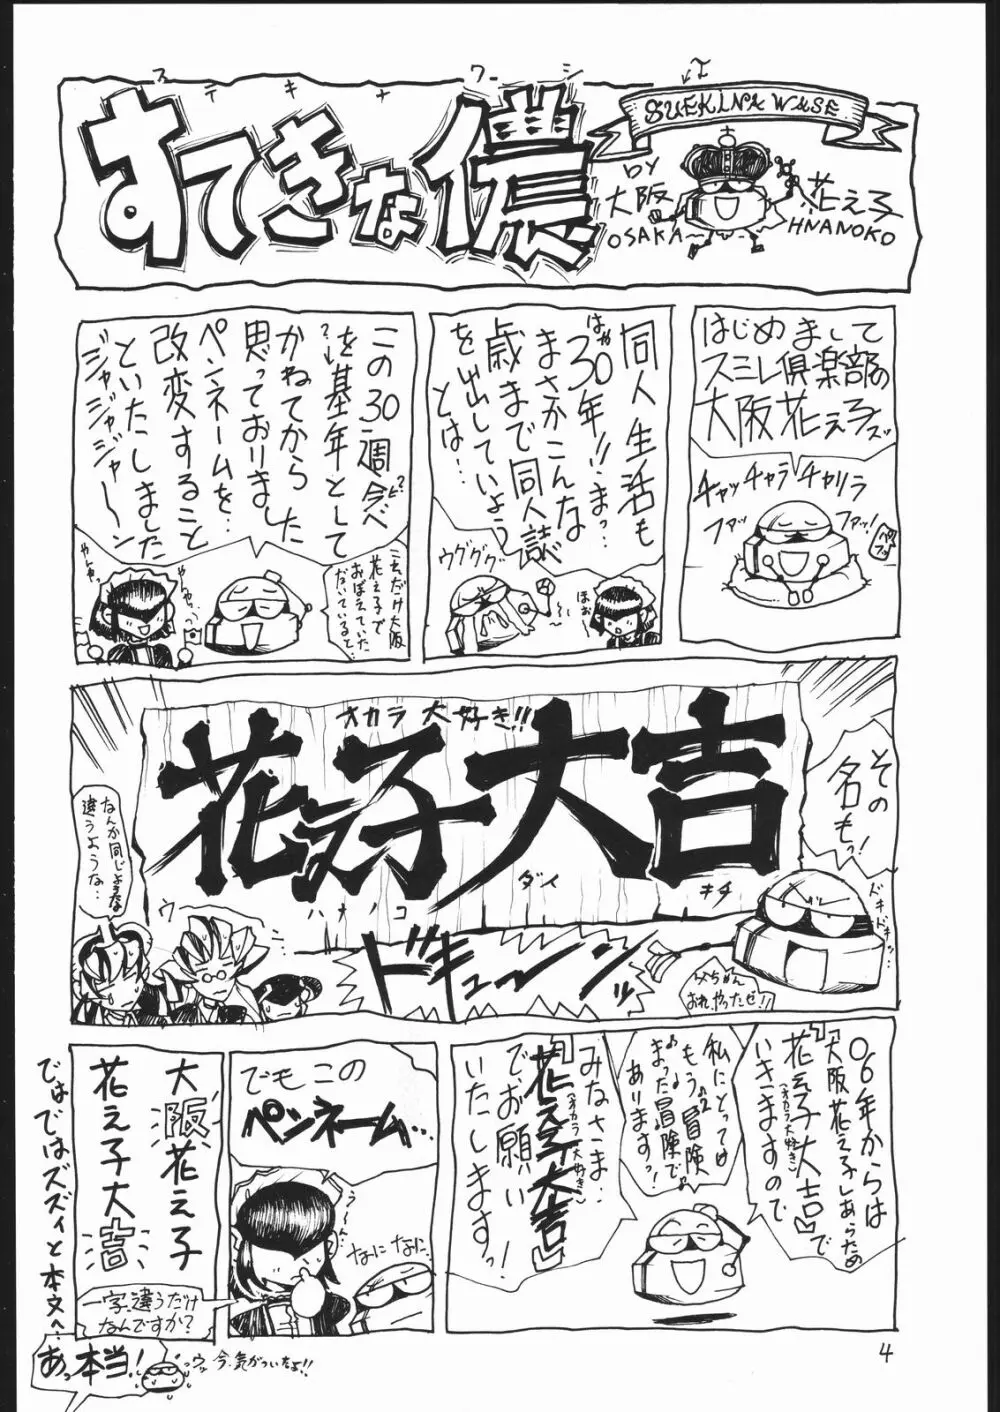 ステキナワシ
すてきな儂
SUEKINA WASE
↙エ
BY
大阪
花え子
OSAKA
HNANOKO
はじめまして
スミレ倶楽部の
大阪花え子ズッ
チャッチャラチャリラ
ファッ
ファッ!
同人生活も
はや
30年!!ま…っ
まさかこんな
歳まで同人誌
を出出していよう
とは…
ウグググ
ほお
この30週令べ
を基年として
かねてから
思っておりました
ペンネームを…
改変すること
といたしました
ジャジャジャジャ〜〜ン
これだけ大阪
花え子で
おぼえていた
だいていると…
その
名もっ!
オカラ大好き!!
花え子大吉
ハナノコ
ダイ
キチ
ドキュ〜〜ンッ
ドキドキッ
なんか同じような
違うような…
ウ
父ちゃん
おれ、やったぜ!!
06年からは
『大阪花え子』あらため
『花え子大吉』で
(オカラ大好き)
いきますので
私にとっては
もうの冒険
まった冒険で
あります?っ
みなさま…
『花え子大吉』
(オカラ大好き)
でお願い
いたしますっ!
でもこの
ペンネーム…
う〜〜ん…
なになに
大阪花え子
花え子大吉
一字、違うだけ
なんですか?
ではではズズィと本文へ…
あっ本当!
ウッ今、気がついたよ!!
4